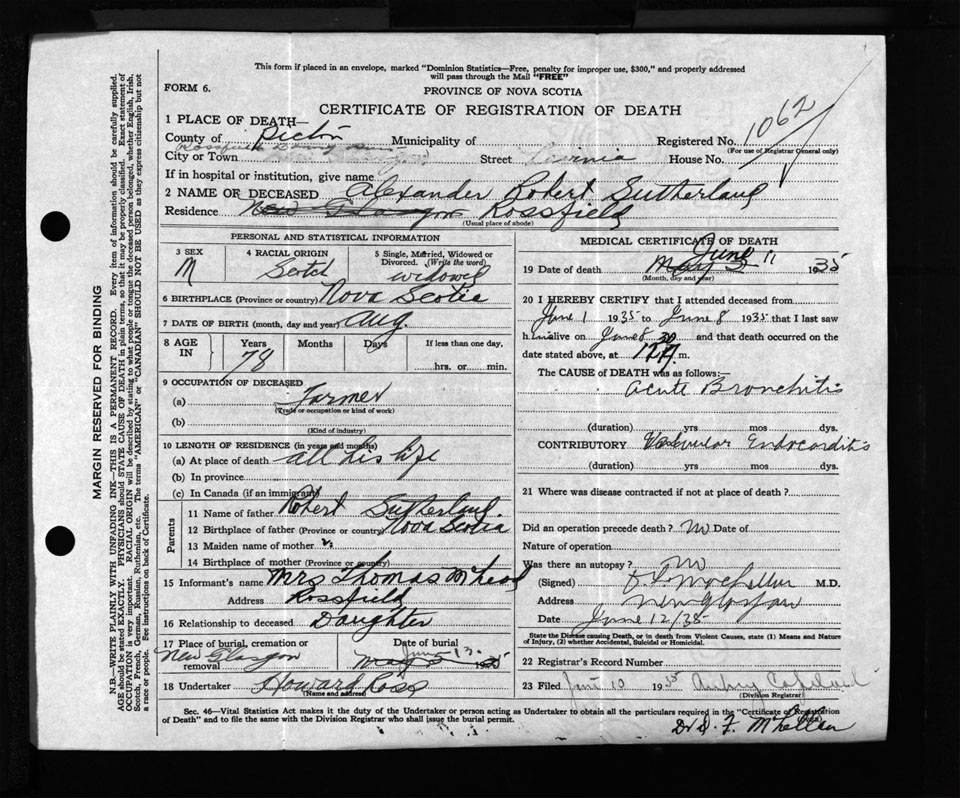 This form if placed in an envelope, marked "Dominion Statistics—Free, penalty for improper use, $300," and properly addressed
will pass through the Mail "FREE"
FORM 6.
PROVINCE OF NOVA SCOTIA
CERTIFICATE OF REGISTRATION OF DEATH
1062
1 PLACE OF DEATH—
County of Pictou Municipality of Registered No.
(For use of Registrar General only)
City or Town Street House No.
If in hospital or institution, give name
2 NAME OF DECEASED Alexander Robert Sutherland
Residence New Glasgow Rossfield
(Usual place of abode)
PERSONAL AND STATISTICAL INFORMATION
3 SEX
M
4 RACIAL ORIGIN
Scotch
5 Single, Married, Widowed or
Divorced. (Write the word)
widowed
6 BIRTHPLACE (Province or country) Nova Scotia
7 DATE OF BIRTH (month, day and year) Aug.
8 AGE
IN
Years
78
Months
Days
If less than one day,
hrs. or min.
9 OCCUPATION OF DECEASED
(a) Farmer
(Trade or occupation or kind of work)
(b)
(Kind of industry)
10 LENGTH OF RESIDENCE (in years and months)
(a) At place of death all his life
(b) In province
(c) In Canada (if an immigrant)
Parents
11 Name of father Robert Sutherland
12 Birthplace of father (Province or country) Nova Scotia
13 Maiden name of mother
14 Birthplace of mother (Province or country)
15 Informant's name Mrs Thomas
Address Rossfield
16 Relationship to deceased Daughter
17 Place of burial, cremation or
removal
New Glasgow
Date of burial
June 13.
May 1935
18 Undertaker Howard Ross
(Name and address)
MEDICAL CERTIFICATE OF DEATH
19 Date of death May June 11 1935
(Month, day and year)
20 I HEREBY CERTIFY that I attended deceased from
June 1 1935 to June 8 1935 that I last saw
him alive on June 8 and that death occurred on the
date stated above, at m.
The CAUSE of DEATH was as follows:
Acute Bronchitis
(duration) yrs mos dys.
CONTRIBUTORY Valvular Endocarditis
(duration) yrs mos dys.
21 Where was disease contracted if not at place of death?
Did an operation precede death? no Date of
Nature of operation
Was there an autopsy? no
(Signed) M.D.
Address New Glasgow
Date June 12/35
State the Disease causing Death, or in death from Violent Causes, state (1) Means and Nature
of Injury, (2) whether Accidental, Suicidal or Homicidal.
22 Registrar's Record Number
23 Filed 1935
(Division Registrar)
Sec. 46—Vital Statistics Act makes it the duty of the Undertaker or person acting as Undertaker to obtain all the particulars required in the "Certificate of Registration
of Death" and to file the same with the Division Registrar who shall issue the burial permit.
(OVER)
MARGIN RESERVED FOR BINDING
N.B.—WRITE PLAINLY WITH UNFADING INK—THIS IS A PERMANENT RECORD. Every item of information should be carefully supplied.
AGE should be stated EXACTLY. PHYSICIANS should STATE CAUSE OF DEATH in plain terms, so that it may be properly classified. Exact statement of
OCCUPATION is very important. RACIAL ORIGIN will be described by stating to what people or tongue the deceased person belonged, whether English, Irish,
Scotch, French, German, Russian, Ruthenian, etc. The terms "AMERICAN" or "CANADIAN" SHOULD NOT BE USED as they express citizenship but not
a race or people. See instructions on back of Certificate.